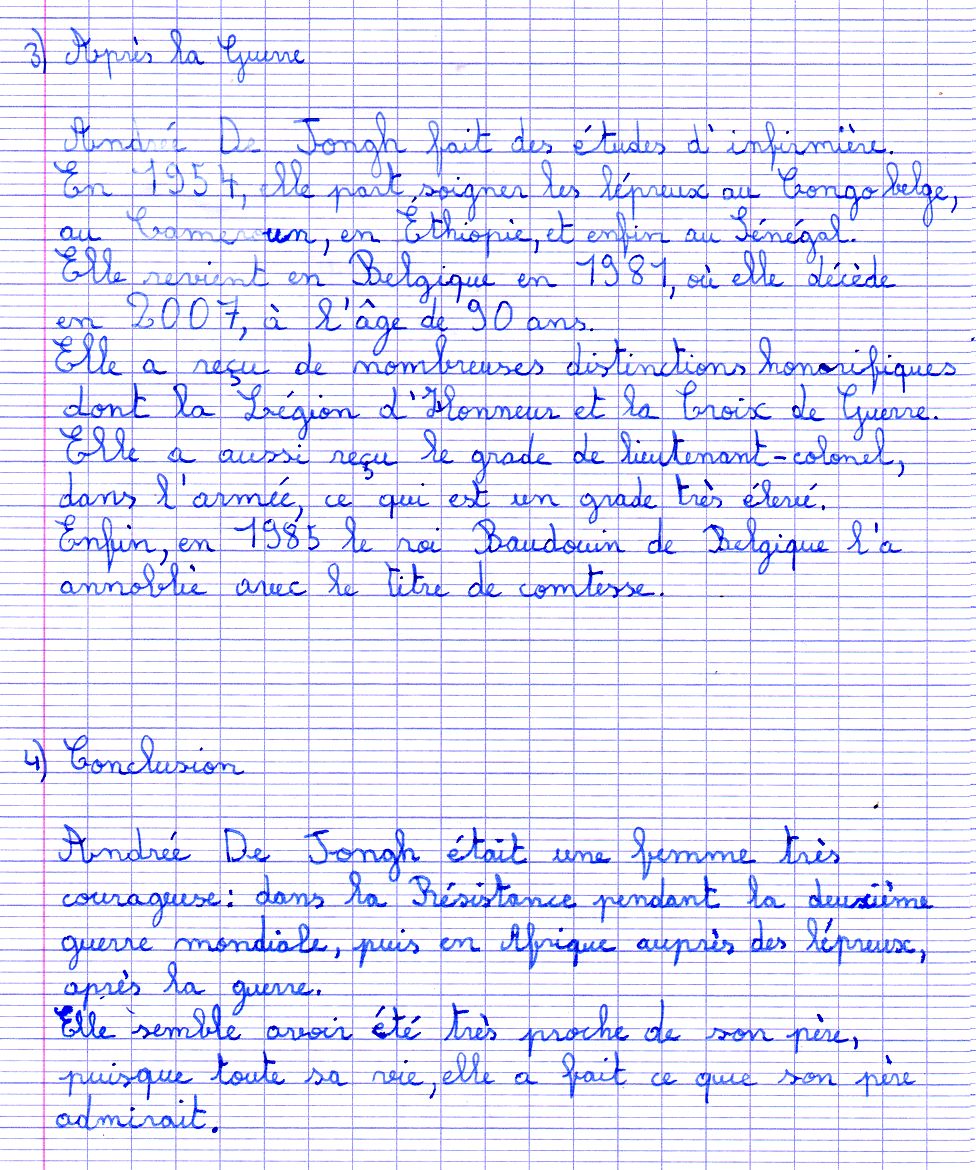 3) Après la Guerre
Andrée De Jongh fait des études d'infirmière.
En 1954, elle part soigner les lépreux au Congo belge,
au Cameroun, en Éthiopie, et enfin au Sénégal.
Elle revient en Belgique en 1981, où elle décède
en 2007, à l'âge de 90 ans.
Elle a reçu de nombreuses distinctions honorifiques
dont la Légion d'Honneur et la Croix de Guerre.
Elle a aussi reçu le grade de lieutenant-colonel,
dans l'armée, ce qui est un grade très élevé.
Enfin, en 1985 le roi Baudouin de Belgique l'a
annoblie avec le titre de comtesse.
4) Conclusion
Andrée De Jongh était une femme très
courageuse : dans la Résistance pendant la deuxième
guerre mondiale, puis en Afrique auprès des lépreux,
après la guerre.
Elle semble avoir été très proche de son père,
puisque toute sa vie, elle a fait ce que son père
admirait.